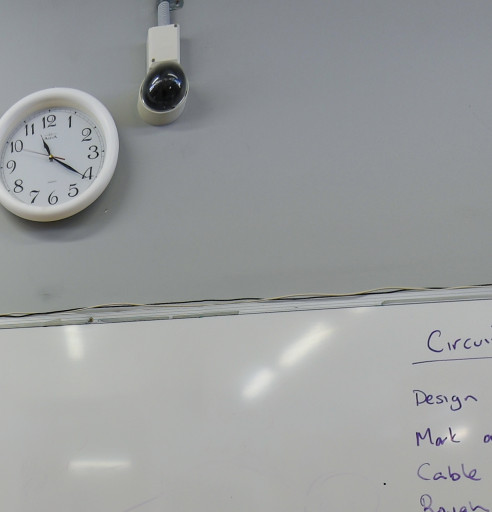 12
1
2
3
4
5
6
7
8
9
10
11
Circui
Design
Mark
Cable